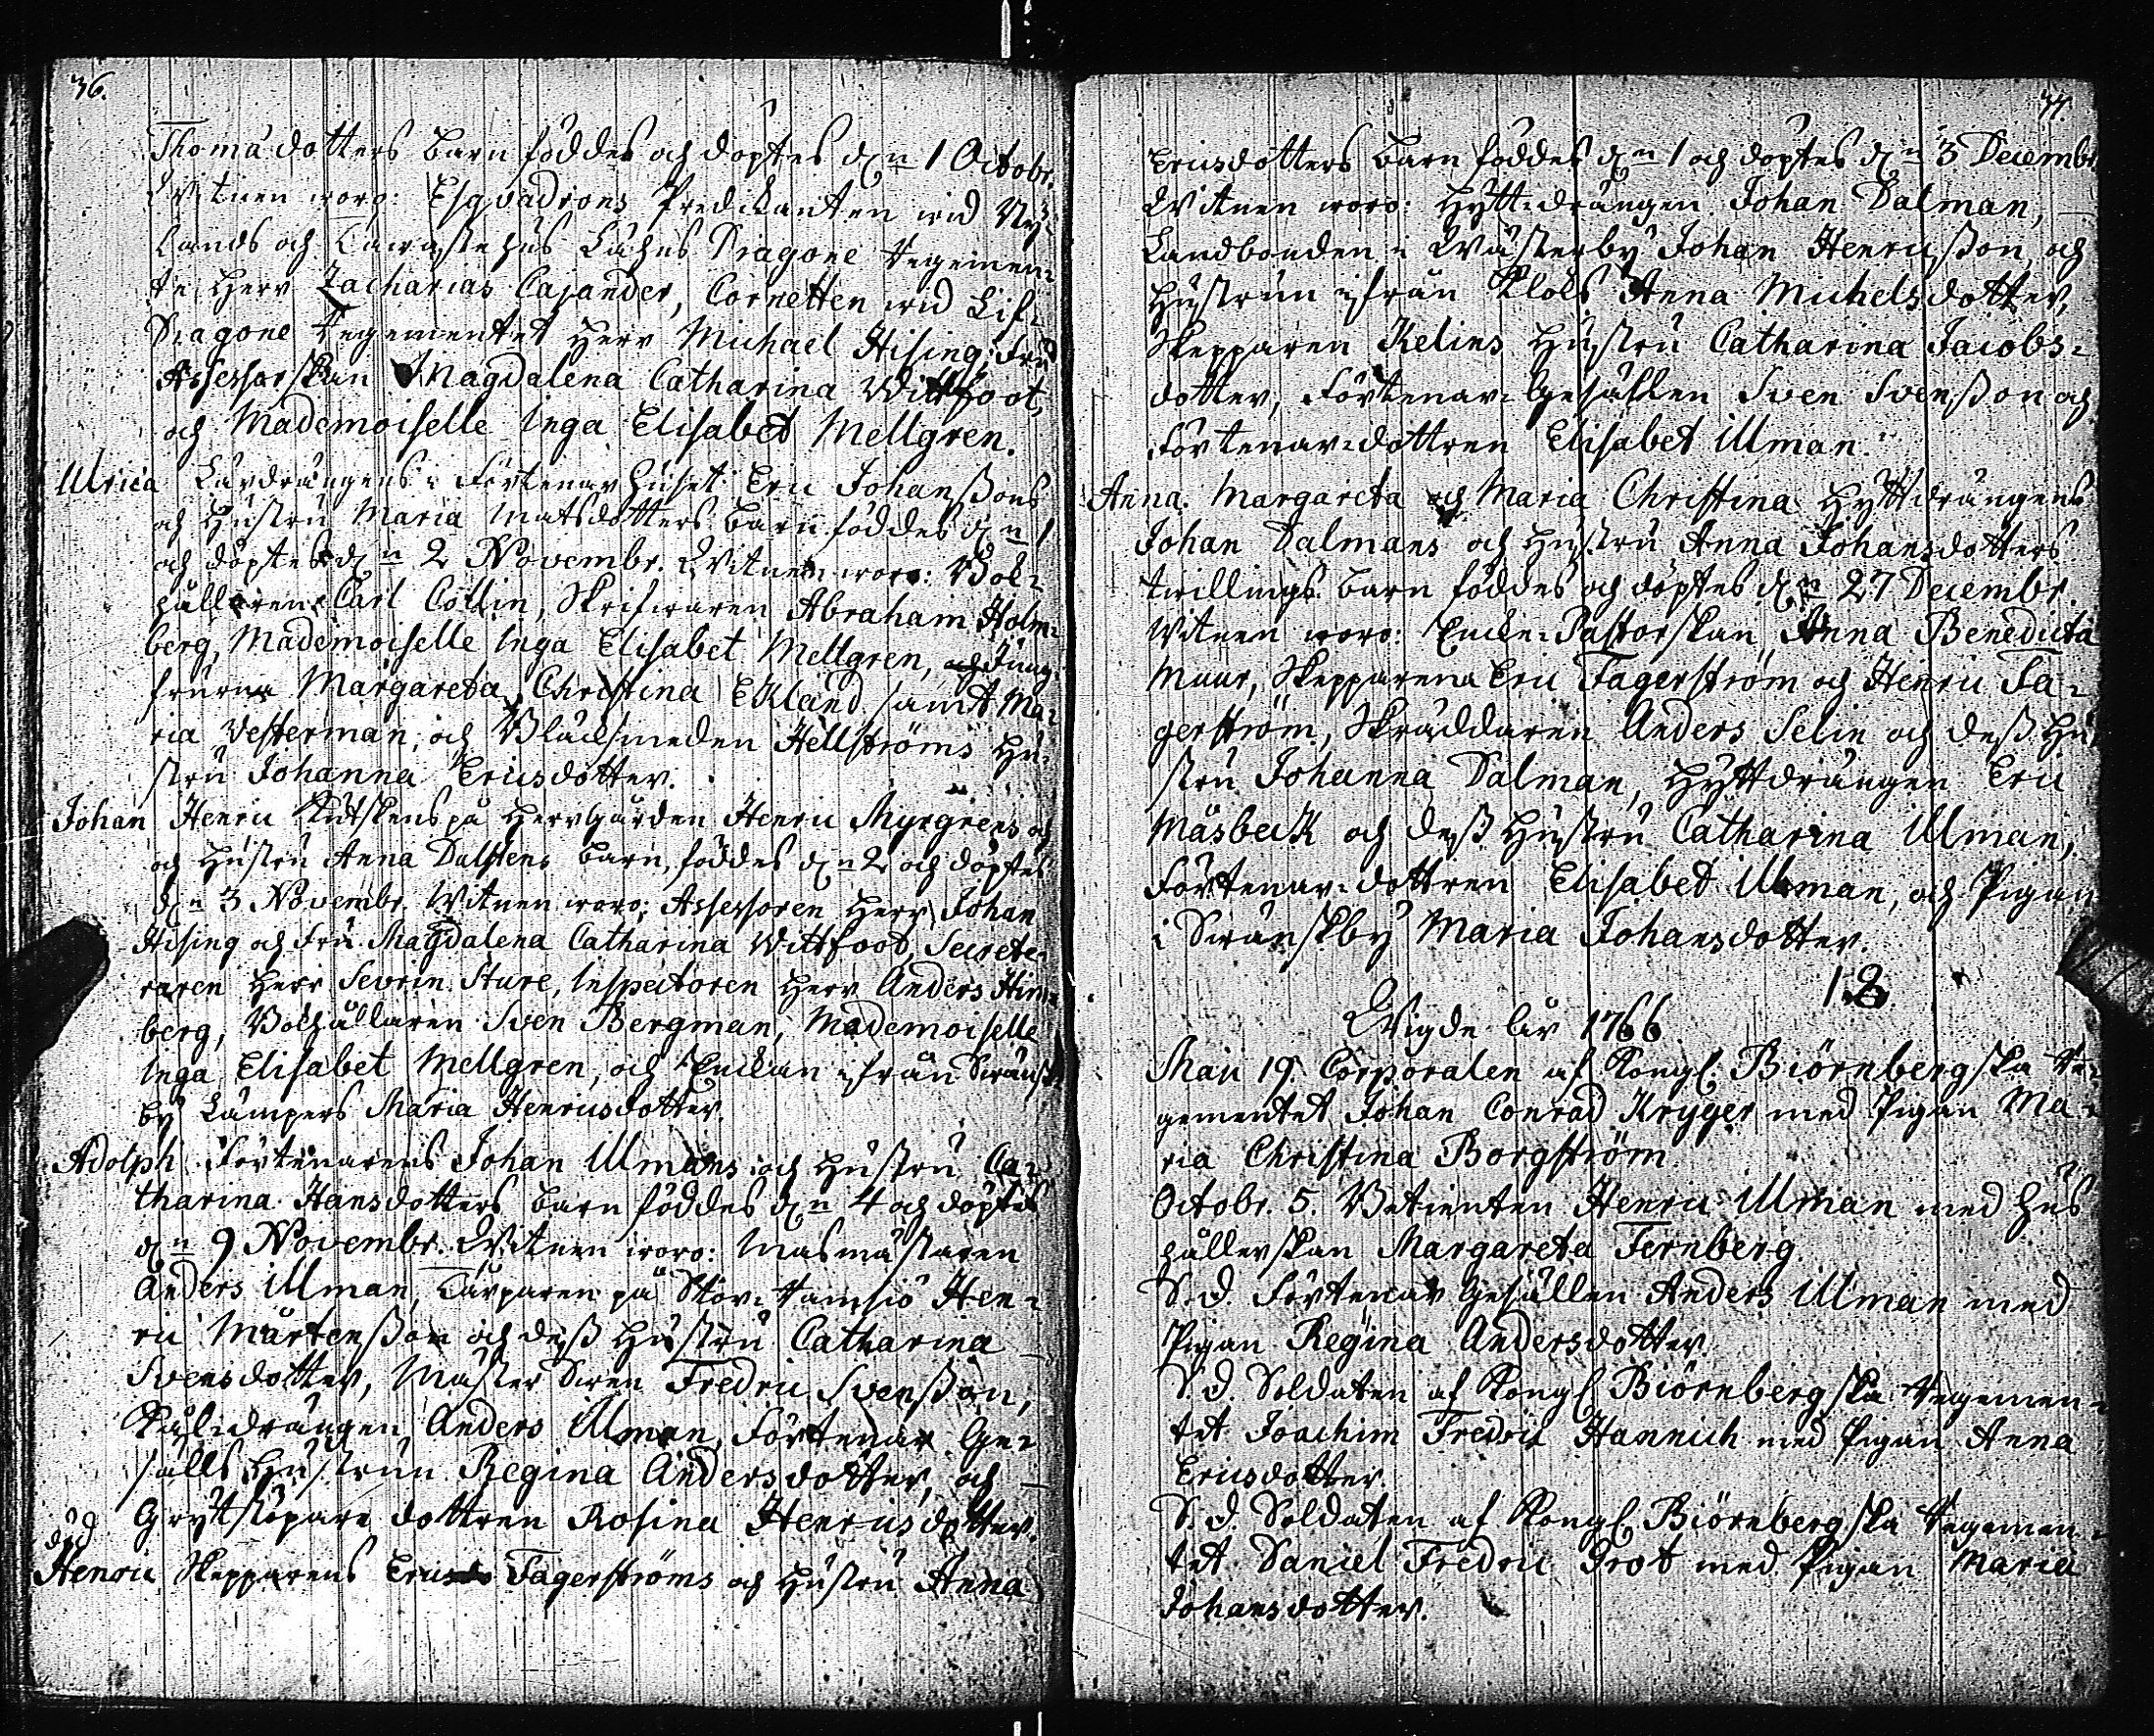 36.
Thomædotters barn föddes och döptes d:n 1 Octobr.
Witnen woro: Esqvadrons Predikanten wid Ny-
lands och Tawastehus Lähns Dragone Regemen-
te Herr Zacharias Cajander, Cornetten wid Lif-
Dragone Regementet Herr Michael Hising, Fru
Assessorskan Magdalena Catharina Wittfoot,
och Mademoiselle Inga Elisabet Mellgren.
Ulrica Lärdrängens i Förtenarhuset Eric Johanßons
och Hustru Maria Matsdotters barn föddes d:n 1
och döptes d:n 2 Novembr. Witnen woro: Bok-
hållaren Carl Collin, Skrifwaren Abraham Holm-
berg, Mademoiselle Inga Elisabet Mellgren, Jung-
frurna Margareta Christina Eklund samt Ma-
ria Westerman, och Blacksmeden Hellströms Hu-
stru Johanna Ericsdotter.
Johan Henric Kutskens på Herrgården Henric Myrgrens och
och Hustru Anna Dalstens barn, föddes d:n 2 och döptes
d:n 3 Novembr. Witnen woro: Assessoren Herr Johan
Hising och Fru Magdalena Catharina Wittfoot, Secrete-
raren Herr Sevrin Sture, Inspectoren Herr Anders Him-
berg, Bokhållaren Sven Bergman, Mademoiselle
Inga Elisabet Mellgren, och Enckan ifrån Swänsk-
by Lampers Maria Henricsdotter.
Adolph Förtenarens Johan Ulmans och Hustru Ca-
tharina Hansdotters barn föddes d:n 4 och döptes
d:n 9 Novembr. Witnen woro: Masmästaren
Anders Ulman, Torparen på Stor-Ramsiö Hen-
ric Mårtenßon och deß Hustru Catharina
Svensdotter, Mäster Sven Fredric Svenßon,
Kohldrängen Anders Ulman, Förtenar Ge-
sälls Hustrun Regina Andersdotter, och
Grytstöpare dottren Rosina Henricsdotter.
död
Henric Skepparens Erics Fagerströms och Hustru Anna
37.
Ericsdotters barn föddes d:n 1 och döptes d:n 3 Decembr.
Witnen woro: Hyttedrängen Johan Dalman,
Landbonden i Wästerby Johan Henricßon, och
Hustrun ifrån Klöfs Anna Michelsdotter,
Skepparen Kelins Hustru Catharina Jacobs-
dotter, Förtenar-Gesällen Sven Svenßon och
Förtenar-dottren Elisabet Ulman.
Anna Margareta och Maria Christina Hyttdrängens
Johan Dalmans och Hustru Anna Johansdotters
twillings barn föddes och döptes d:n 27 Decembr.
Witnen woro: Encke-Pastorskan Anna Benedicta
Muur, Skepparena Eric Fagerström och Henric Fa-
gerström, Skräddaren Anders Selin och deß Hu-
stru Johanna Dalman, Hyttdrängen Eric
Måsbeck och deß Hustru Catharina Ulman,
Förtenar-dottren Elisabet Ulman, och Pigan
i Swänskby Maria Johansdotter.
18
Wigde åhr 1766
Maji 19. Corporalen af Kongl. Biörnbergska Re-
gementet Johan Conrad Kryger med Pigan Ma-
ria Christina Borgström
Octobr. 5. Betienten Henric Ulman med Hus-
hållerskan Margareta Fernberg
S. d. Förtenar Gesällen Anders Ulman med
Pigan Regina Andersdotter.
S. d. Soldaten af Kongl. Biörnbergska Regemen-
tet Joachim Fredric Hannich med Pigan Anna
Ericsdotter.
S. d. Soldaten af Kongl. Biörnbergska Regemen-
tet Daniel Fredric Grot med Pigan Maria
Johansdotter.